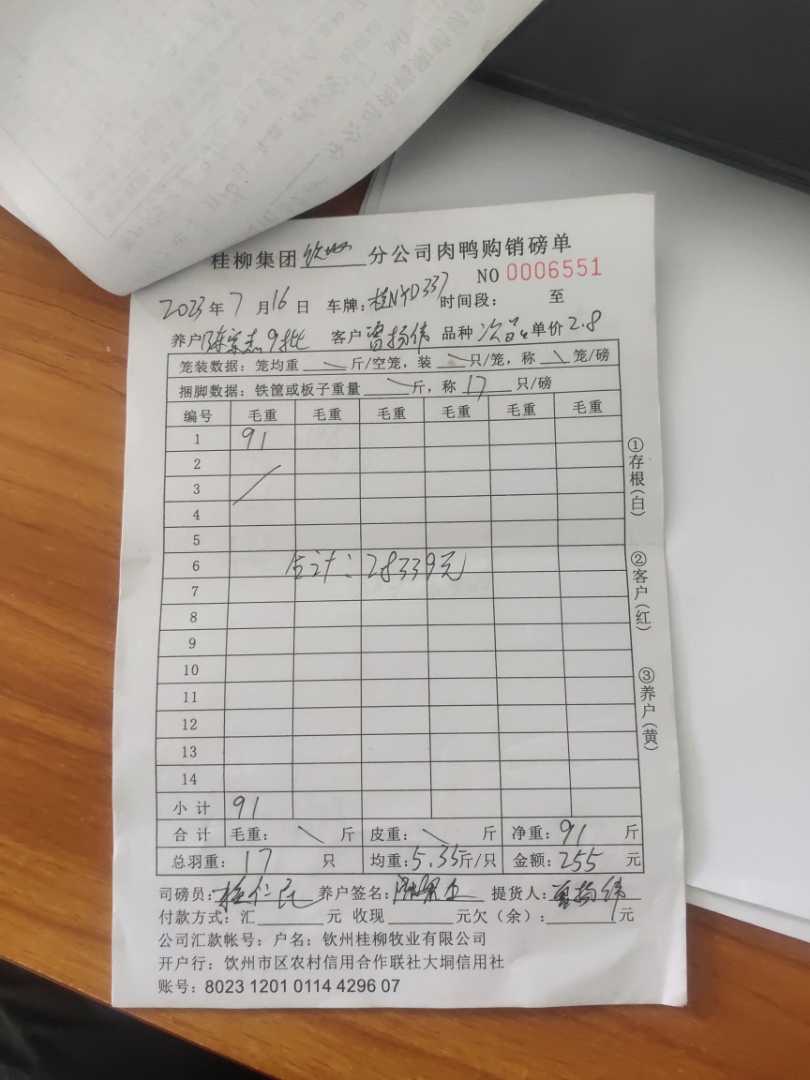 桂柳集团钦州分公司肉鸭购销磅单
NO 0006551
2023年7月16日 车牌：桂NYD337 时间段： 至
养户 9批 客户 曾扬伟 品种 次品 单价2.8
笼装数据：笼均重 斤/空笼，装 只/笼，称 笼/磅
捆脚数据：铁筐或板子重量 斤，称 17 只/磅
编号 毛重 毛重 毛重 毛重 毛重 毛重
1 91
2
3
4
5
6
合计：28339元
7
8
9
10
11
12
13
14
小计 91
合计 毛重： 斤 皮重： 斤 净重：91 斤
总羽重：17 只 均重：5.35斤/只 金额：255 元
司磅员： 养户签名： 提货人：曾扬伟
付款方式：汇 元 收现 元欠（余）： 元
公司汇款帐号：户名：钦州桂柳牧业有限公司
开户行：饮州市区农村信用合作联社大垌信用社
账号：8023 1201 0114 4296 07
①存根（白）
②客户（红）
③养户（黄）